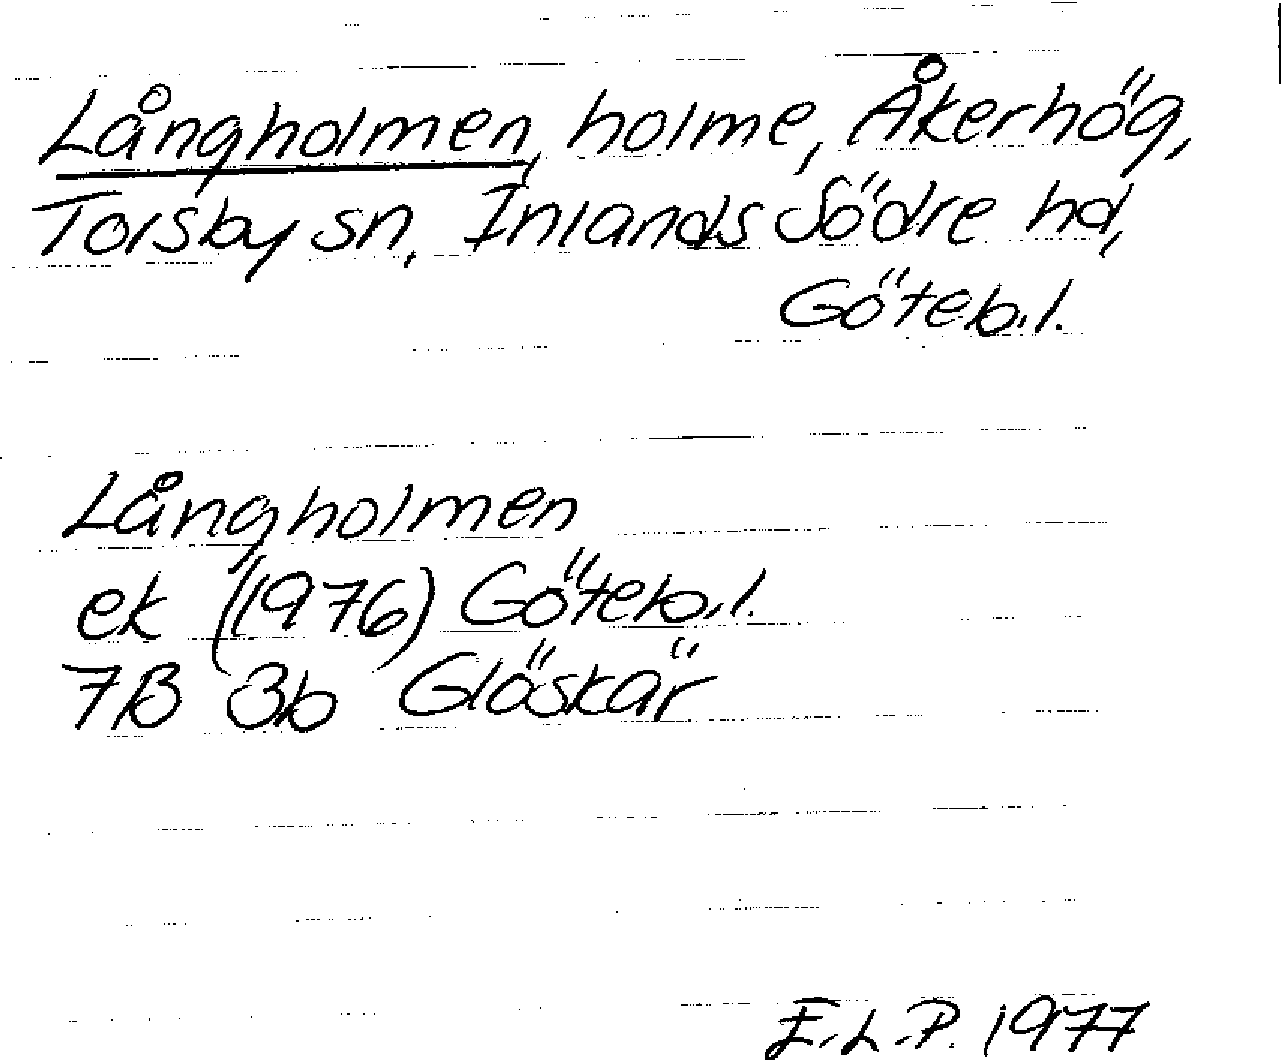 Långholmen, holme, Åkerhög,
Torsby sn, Inlands Södre hd,
Göteb.l.
Långholmen
ek (1976) Göteb.l.
7B 3b Glöskär
E.L.P. 1977